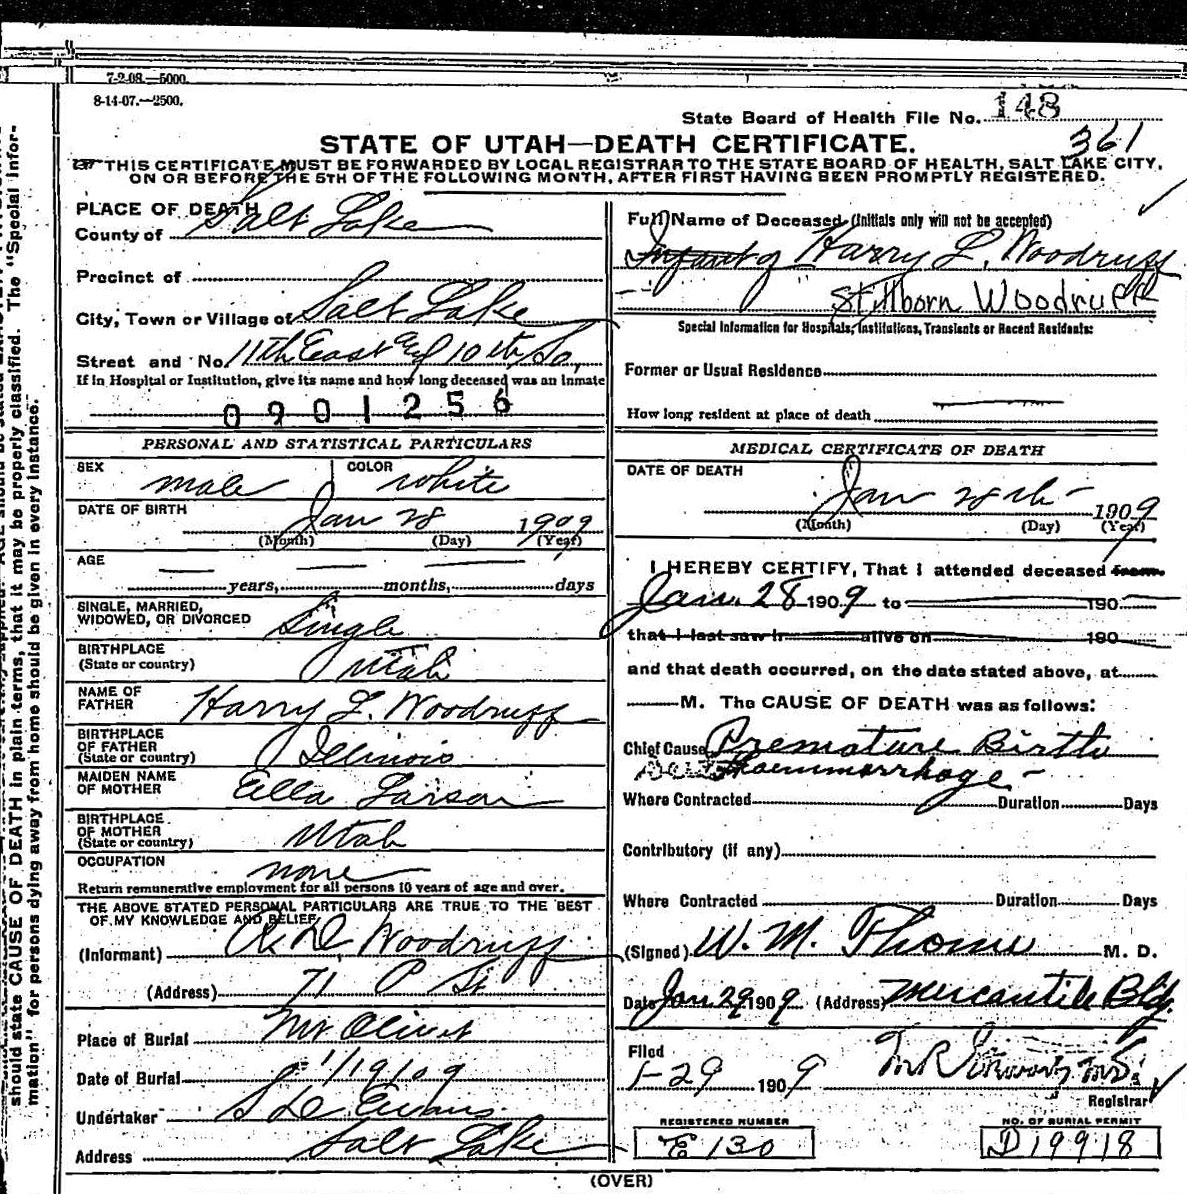 7-2-08.—5000.
8-14-07.—2500.
State Board of Health File No. 148
361
STATE OF UTAH—DEATH CERTIFICATE.
THIS CERTIFICATE MUST BE FORWARDED BY LOCAL REGISTRAR TO THE STATE BOARD OF HEALTH, SALT LAKE CITY,
ON OR BEFORE THE 5TH OF THE FOLLOWING MONTH, AFTER FIRST HAVING BEEN PROMPTLY REGISTERED.
PLACE OF DEATH
County of Salt Lake
Precinct of
City, Town or Village of Salt Lake
Street and No. 11th East and 10th So,
If in Hospital or Institution, give its name and how long deceased was an inmate
0901256
PERSONAL AND STATISTICAL PARTICULARS
SEX male COLOR white
DATE OF BIRTH Jan 28 1909
(Month) (Day) (Year)
AGE
years, months, days
SINGLE, MARRIED,
WIDOWED, OR DIVORCED Single
BIRTHPLACE
(State or country) Utah
NAME OF
FATHER Harry L. Woodruff
BIRTHPLACE
OF FATHER
(State or country) Illinois
MAIDEN NAME
OF MOTHER Ella Larson
BIRTHPLACE
OF MOTHER
(State or country) Utah
OCCUPATION none
Return remunerative employment for all persons 10 years of age and over.
THE ABOVE STATED PERSONAL PARTICULARS ARE TRUE TO THE BEST
OF MY KNOWLEDGE AND BELIEF
(Informant) Woodruff
(Address) 71 P St
Place of Burial Mt Olivet
Date of Burial 1/29/09
Undertaker S D Evans
Address Salt Lake
Full Name of Deceased (Initials only will not be accepted)
Infant of Harry L. Woodruff
Stillborn Woodruff
Special Information for Hospitals, Institutions, Transients or Recent Residents:
Former or Usual Residence
How long resident at place of death
MEDICAL CERTIFICATE OF DEATH
DATE OF DEATH
Jan 28th 1909
(Month) (Day) (Year)
I HEREBY CERTIFY, That I attended deceased from
Jan. 28 1909 to 190
that I last saw h alive on 190
and that death occurred, on the date stated above, at
M. The CAUSE OF DEATH was as follows:
Chief Cause Premature Birth
haemmorrhage
Where Contracted Duration Days
Contributory (if any)
Where Contracted Duration Days
(Signed) W. M. M. D.
Date Jan. 29 1909 (Address) Mercantile Bldg.
Filed
1-29 1909
Registrar
REGISTERED NUMBER
E 130
NO. OF BURIAL PERMIT
D 19918
(OVER)
should state CAUSE OF DEATH in plain terms, that it may be properly classified. The "Special Infor-
mation" for persons dying away from home should be given in every instance.